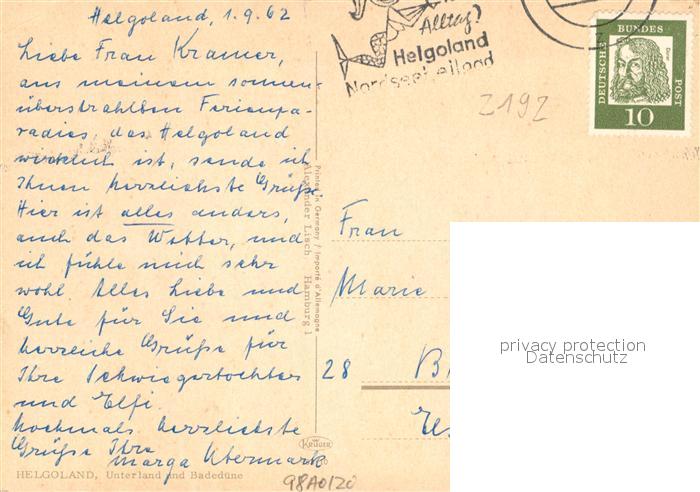 Helgoland, 1.9.62
Liebe Frau Kramer,
aus meinem sonnen-
überstrahlten Ferienpa-
radies, das Helgoland
wirklich ist, sende ich
Ihnen herzlichste Grüße.
Hier ist alles anders,
auch das Wetter, und
ich fühle mich sehr
wohl. Alles Liebe und
Gute für Sie und
herzliche Grüße für
Ihre Schwiegertochter
und Elfi.
Nochmals herzlichste
Grüße Ihre
Marga Utermark
HELGOLAND, Unterland und Badedüne
Alltag?
Helgoland
Nordseeheilbad
DEUTSCHE BUNDES POST
Dürer
10
Z192
Printed in Germany / Importé d'Allemagne
Alexander Lisch Hamburg 1
Frau
Marie
28 B
KRÜGER
98A0120
privacy protection
Datenschutz